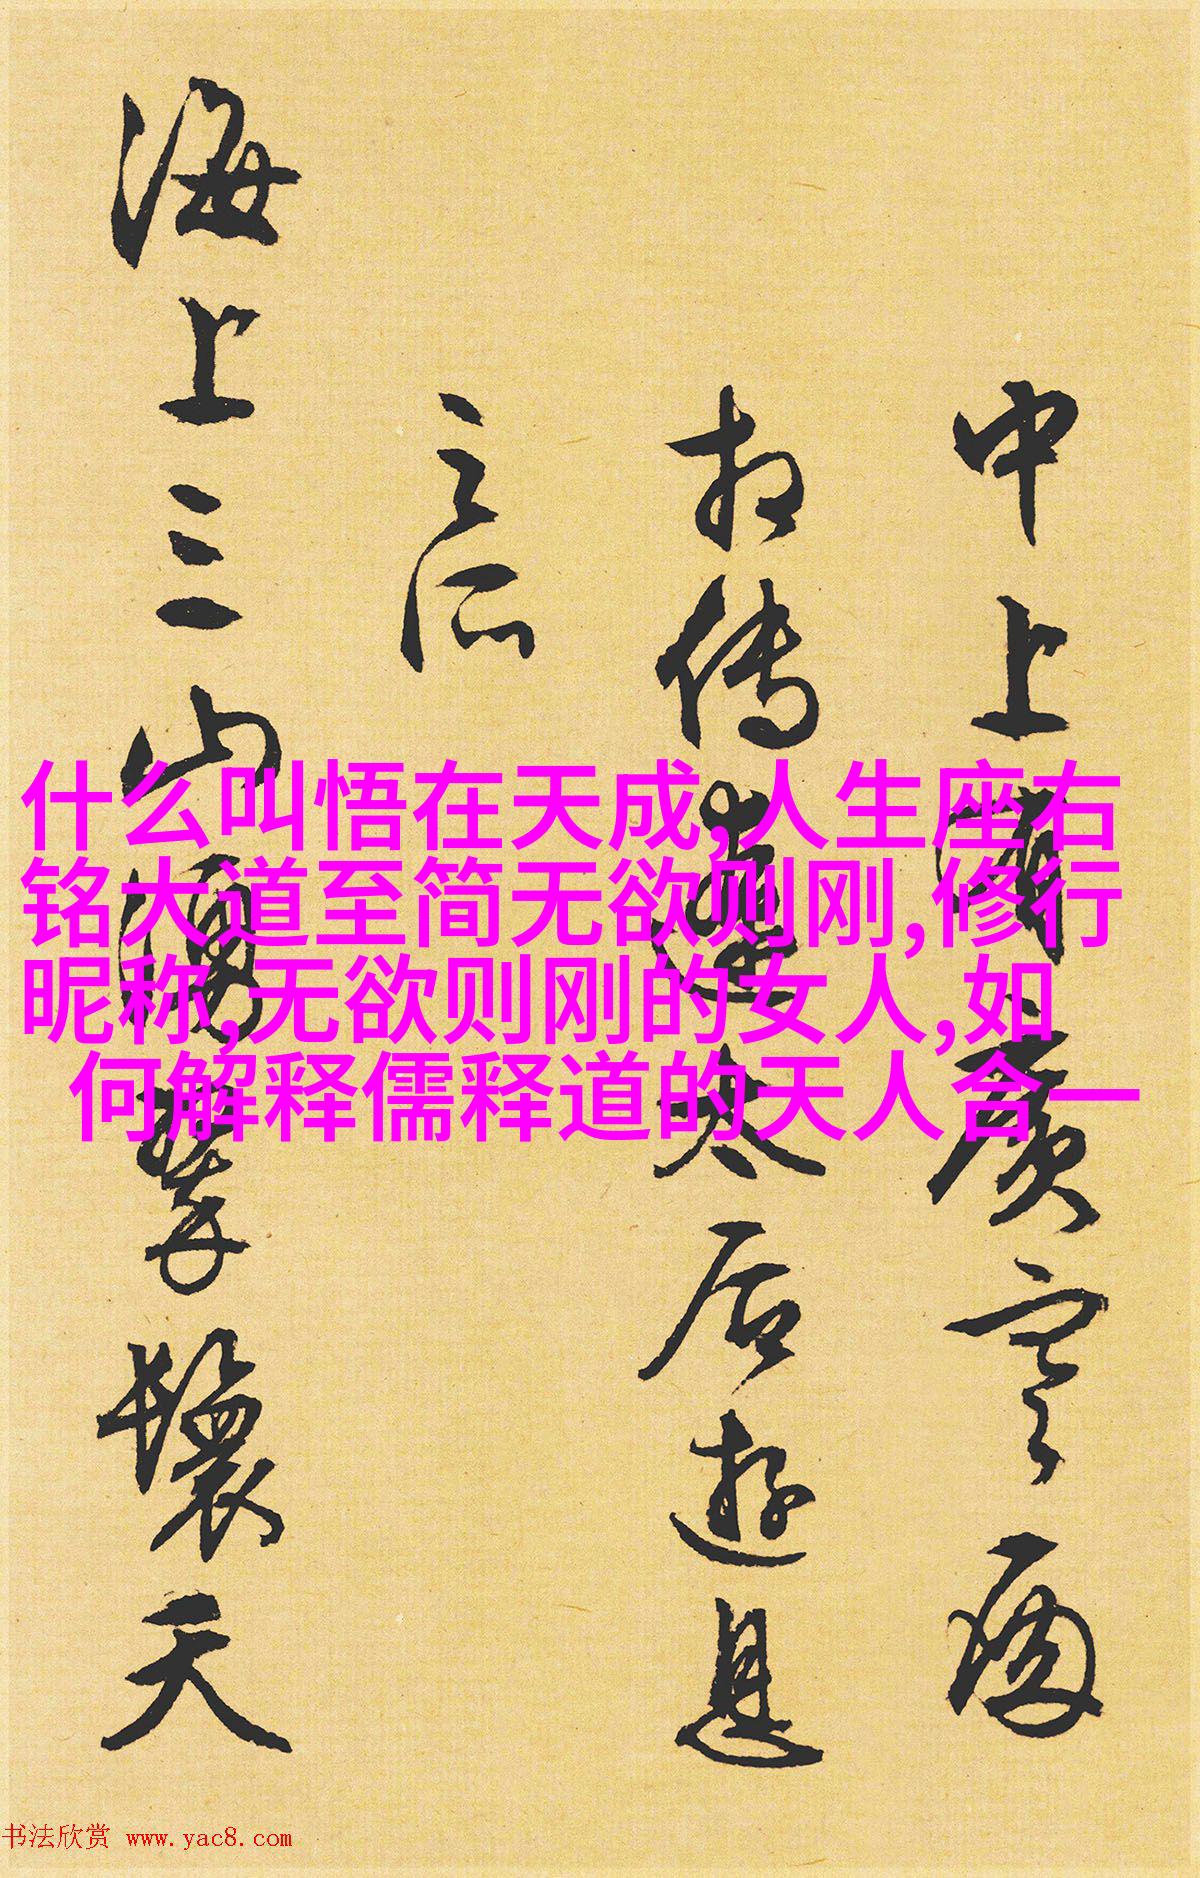 中上有廣寒
相传辽太后游息
之所
海上三山涌翠鬟天
什么叫悟在天成,人生座右
铭大道至简无欲则刚,修行
昵称,无欲则刚的女人,如
何解释儒释道的天人合一
书法欣赏 www.yac8.com